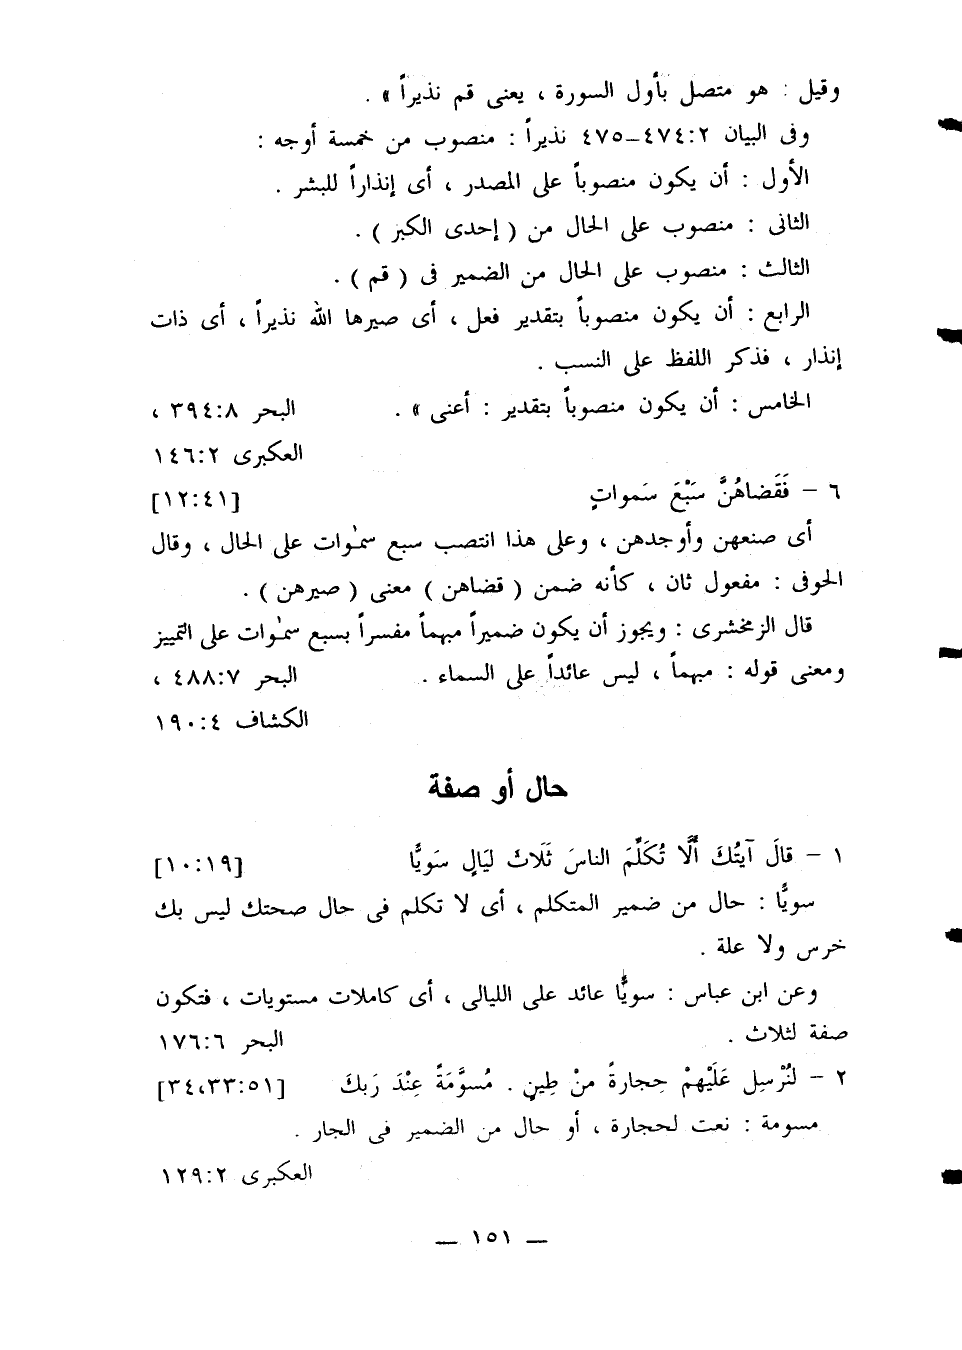 وقيل : هو متصل بأول السورة ، يعنى قم نذيراً » .
وفى البيان ٢:٤٧٤–٤٧٥ نذيراً : منصوب من خمسة أوجه :
الأول : أن يكون منصوباً على المصدر ، أى إنذاراً للبشر .
الثانى : منصوب على الحال من ( إحدى الكبر ) .
الثالث : منصوب على الحال من الضمير فى ( قم ) .
الرابع : أن يكون منصوباً بتقدير فعل ، أى صيرها الله نذيراً ، أى ذات
إنذار ، فذكر اللفظ على النسب .
الخامس : أن يكون منصوباً بتقدير : أعنى » . البحر ٨:٣٩٤ ،
العكبرى ٢:١٤٦
٦ – فَقَضاهُنَّ سَبْعَ سَمواتٍ [١٢:٤١]
أى صنعهن وأوجدهن ، وعلى هذا انتصب سبع سمٰوات على الحال ، وقال
الحوفى : مفعول ثان ، كأنه ضمن ( قضاهن ) معنى ( صيرهن ) .
قال الزمخشرى : ويجوز أن يكون ضميراً مبهماً مفسراً بسبع سمٰوات على التمييز
ومعنى قوله : مبهماً ، ليس عائداً على السماء . البحر ٧:٤٨٨ ،
الكشاف ٤:١٩٠
حال أو صفة
١ – قالَ آيتُكَ أَلَّا تُكَلِّمَ الناسَ ثَلَاثَ لَيَالٍ سَوِيًّا [١٠:١٩]
سويًّا : حال من ضمير المتكلم ، أى لا تكلم فى حال صحتك ليس بك
خرس ولا علة .
وعن ابن عباس : سويًّا عائد على الليالى ، أى كاملات مستويات ، فتكون
صفة لثلاث . البحر ٦:١٧٦
٢ – لنُرْسِل عَلَيْهِمْ حِجارةً مِنْ طِينٍ . مُسوَّمَةً عِنْدَ رَبكَ [٣٤،٣٣:٥١]
مسومة : نعت لحجارة ، أو حال من الضمير فى الجار .
العكبرى ٢:١٢٩
— ١٥١ —